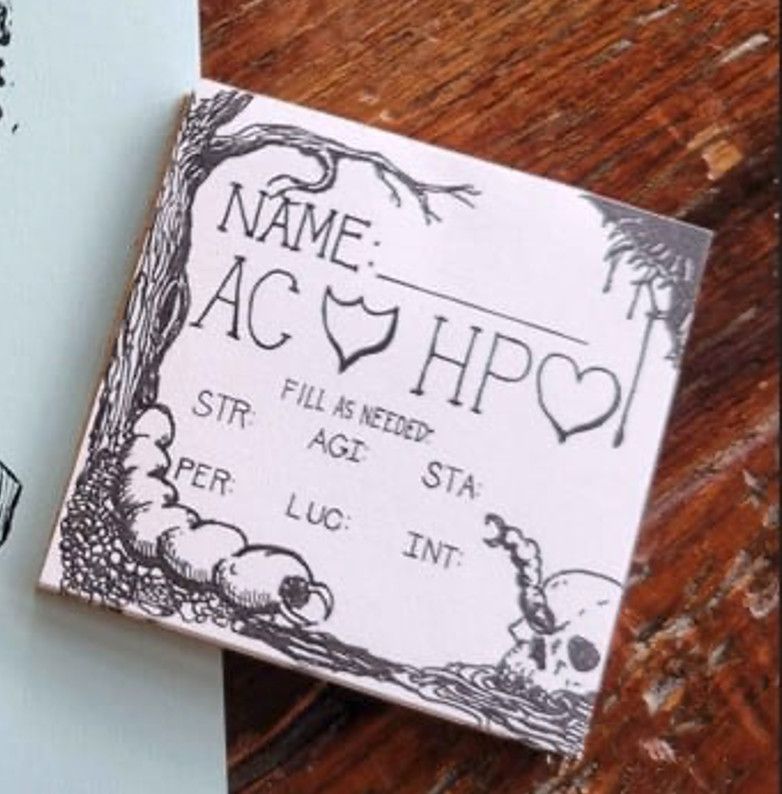 NAME:
AC HP
FILL AS NEEDED:
STR: AGI: STA:
PER: LUC: INT: